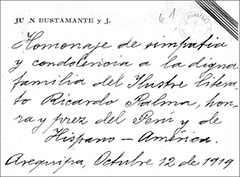 JUAN BUSTAMANTE y J.
61
Homenaje de simpatía
y condolencia a la digna
familia del Ilustre Litera-
to Ricardo Palma, hon-
ra y prez del Perú y de
Hispano-América.
Arequipa, Octubre 12 de 1919